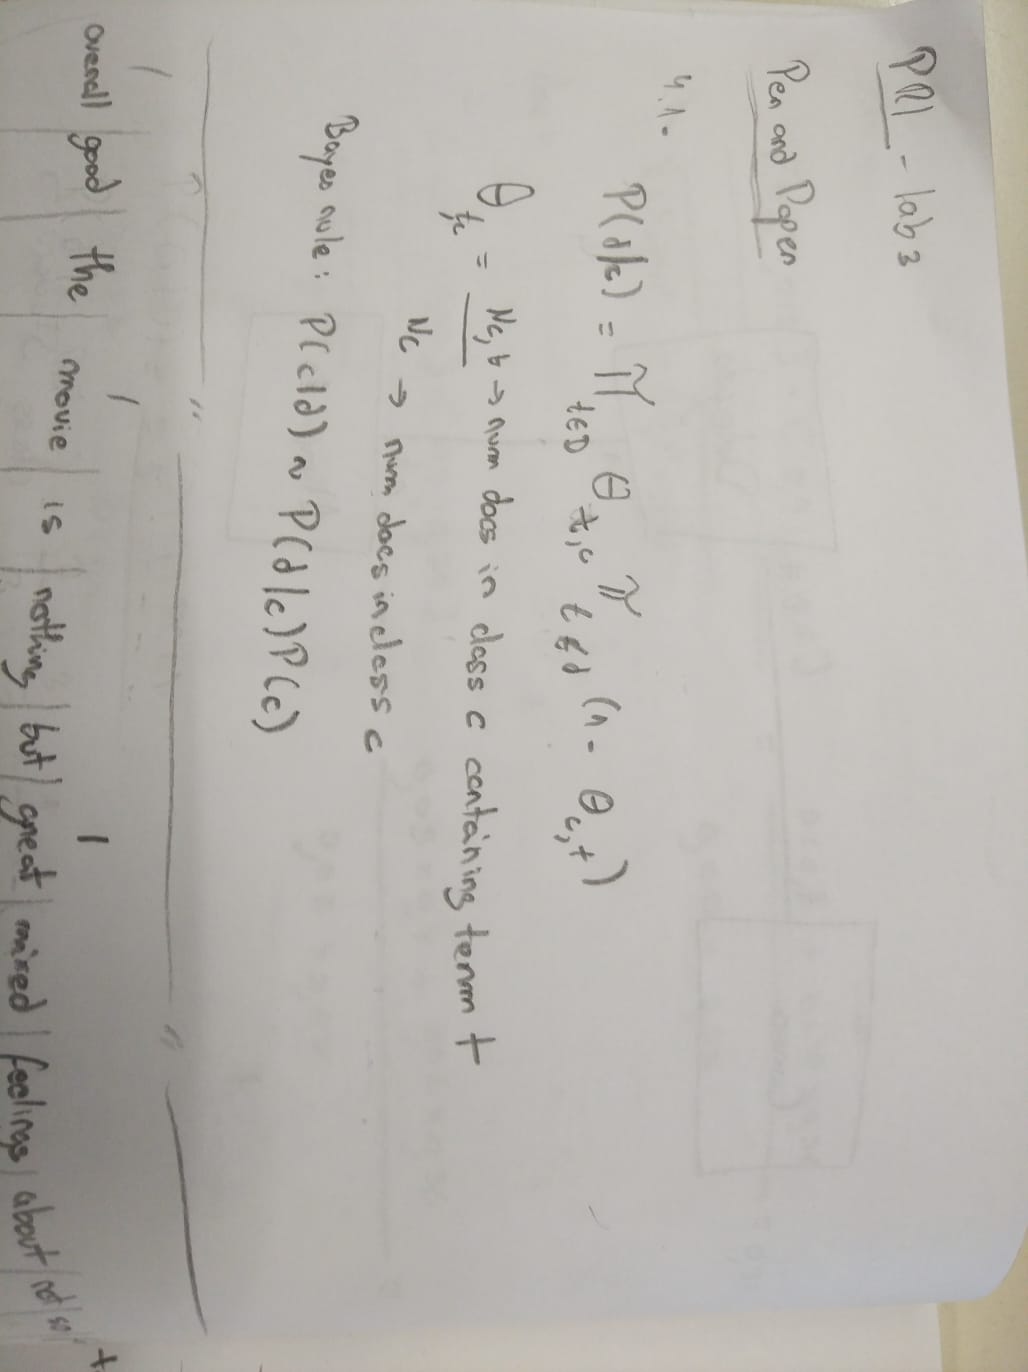 PRI - lab 3
Pen and Paper
4.1.
P(d|c) = ∏ t∈D θ t,c ∏ t∉d (1 - θ c,t)
θ tc = Nc,t → num docs in class c containing term t
Nc → num docs in class c
Bayes rule: P(c|d) ~ P(d|c)P(c)
overall | good | the | movie | is | nothing | but | great | mixed | feelings | about | not | so